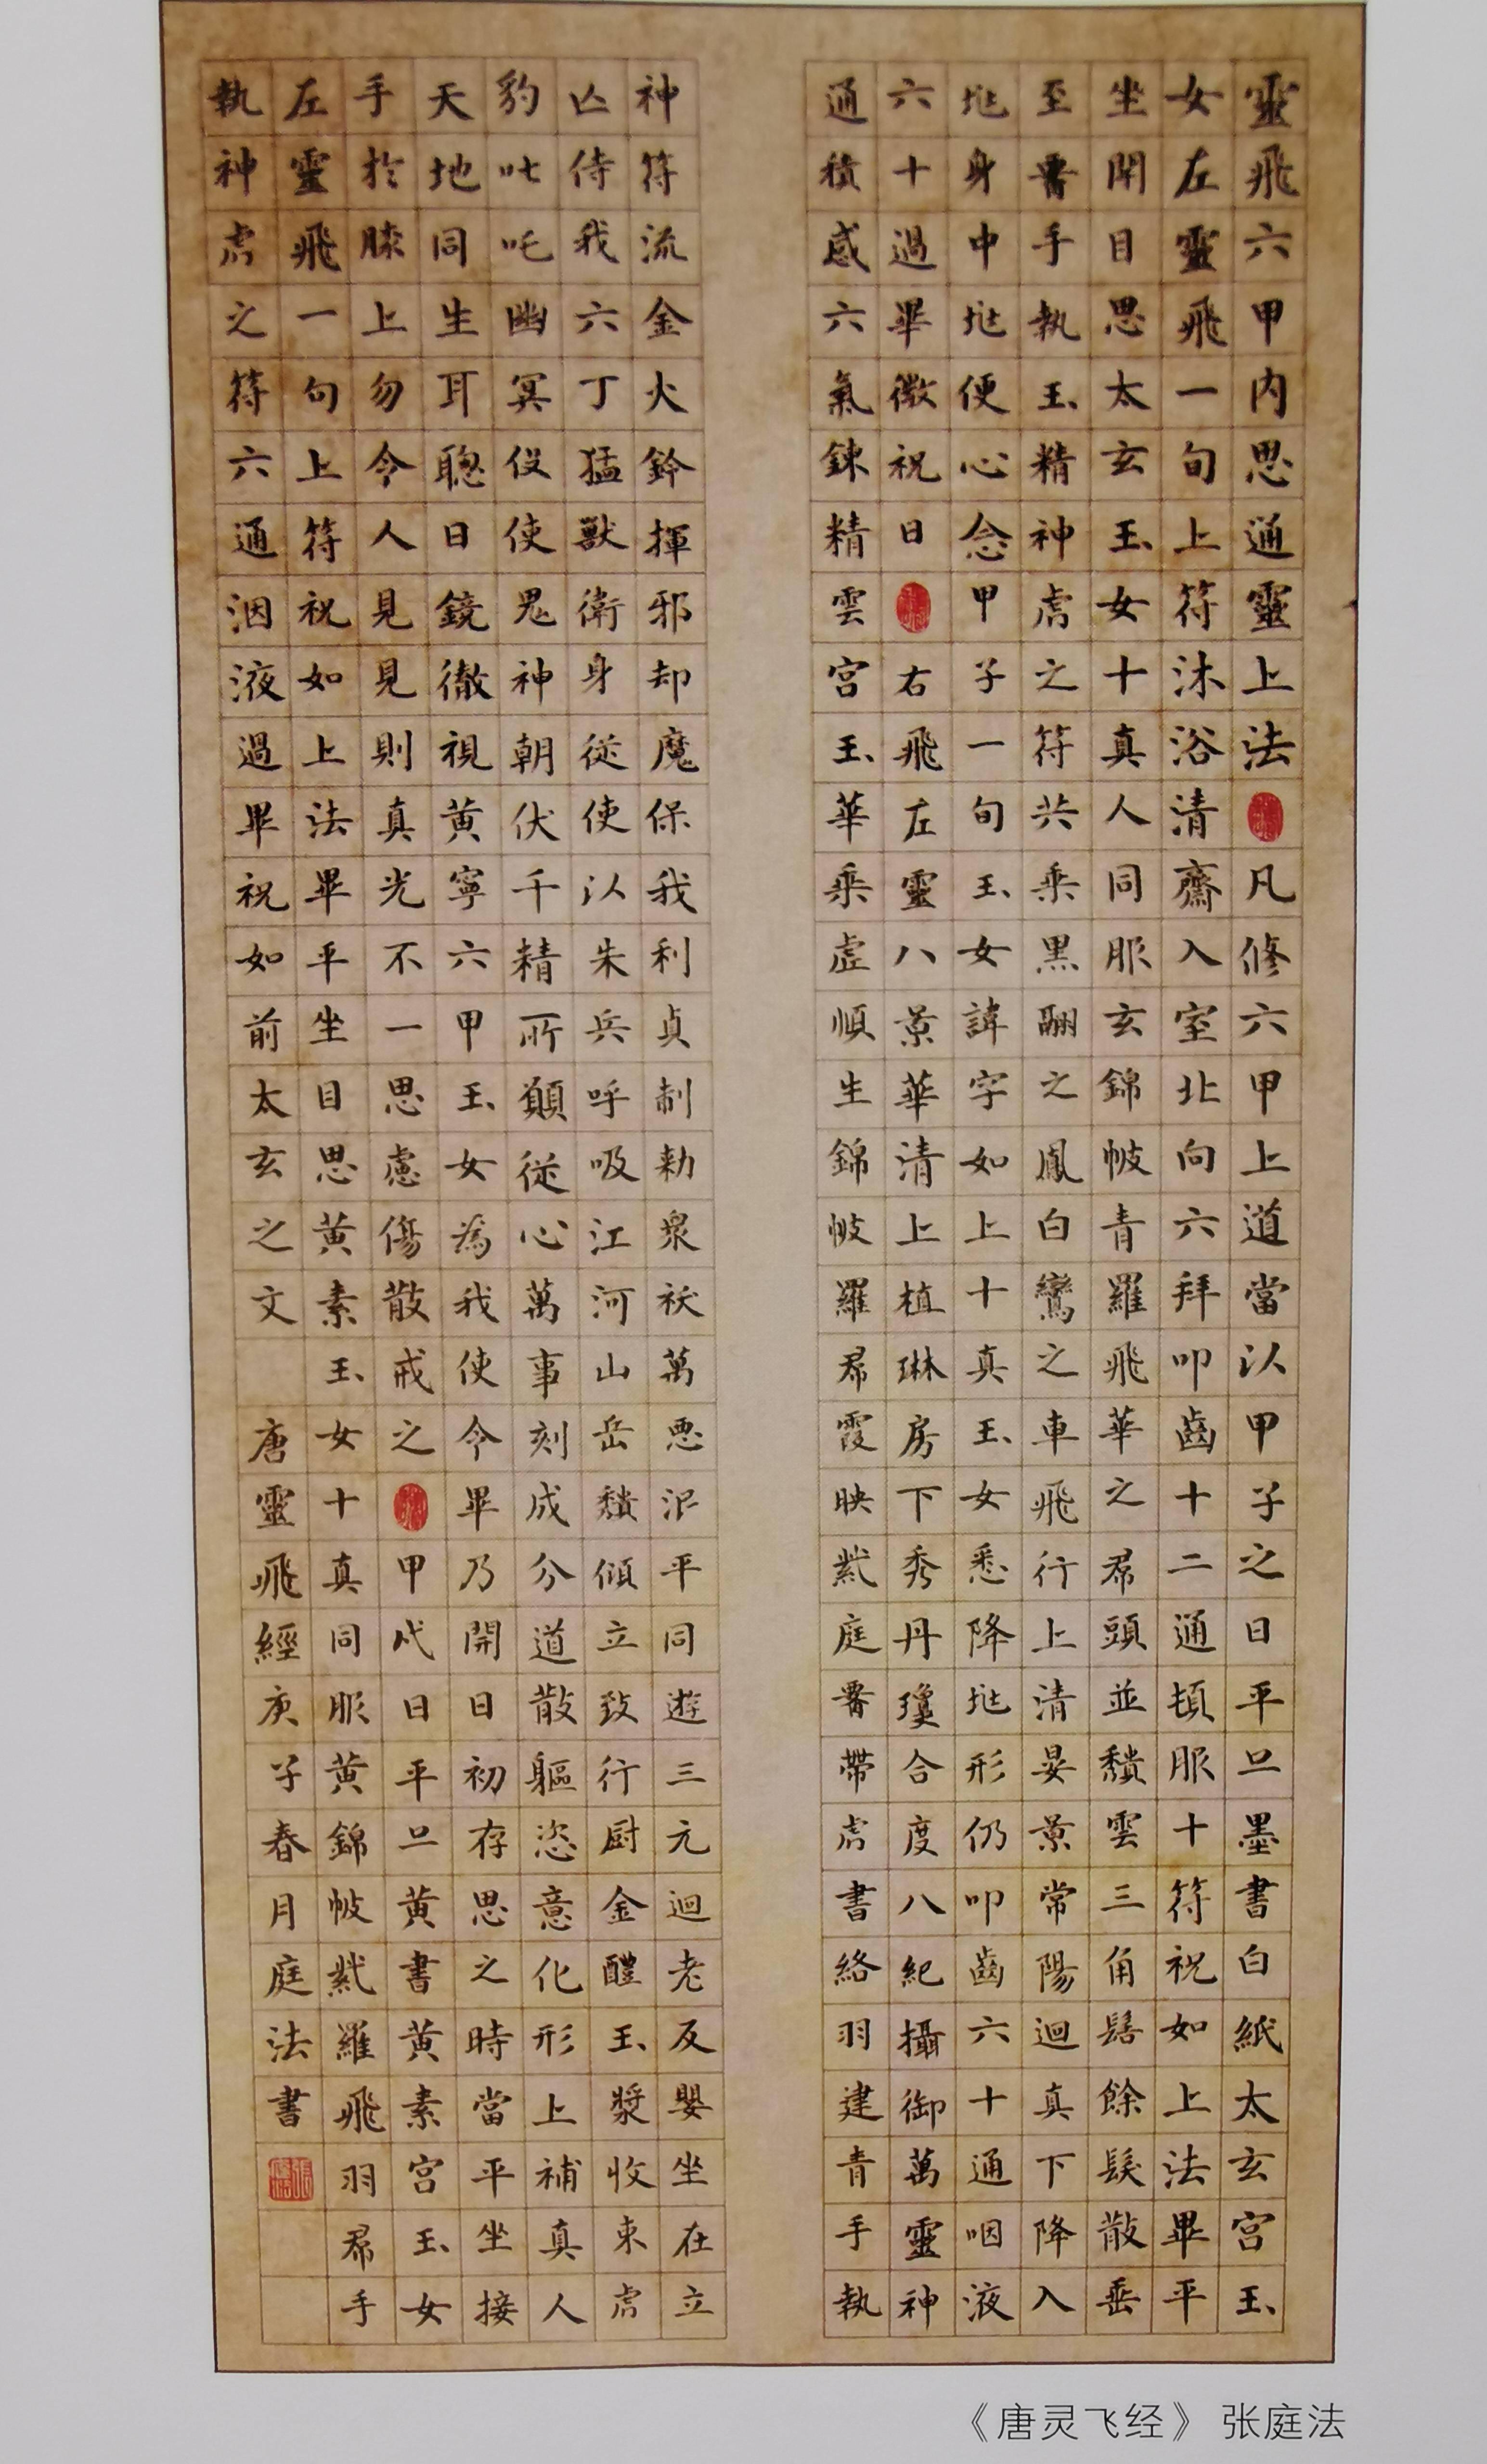 靈飛六甲内思通靈上法凡修六甲上道當以甲子之日平旦墨書白紙太玄宫玉
女左靈飛一旬上符沐浴清齋入室北向六拜叩齒十二通頓服十符祝如上法畢平
坐閉目思太玄玉女十真人同服玄錦帔青羅飛華之帬頭並頽雲三角髻餘髮散垂
至腰手執玉精神虎之符共乘黑翮之鳳白鸞之車飛行上清晏景常陽迴真下降入
兆身中兆便心念甲子一旬玉女諱字如上十真玉女悉降兆形仍叩齒六十通咽液
六十過畢微祝曰右飛左靈八景華清上植琳房下秀丹瓊合度八紀攝御萬靈神
通積感六氣鍊精雲宫玉華乘虚順生錦帔羅帬霞映紫庭腰帶虎書絡羽建青手執
神符流金火鈴揮邪却魔保我利貞制勑衆祅萬惡泯平同遊三元迴老反嬰坐在立
亡侍我六丁猛獸衛身從使以朱兵呼吸江河山岳頽傾立致行厨金醴玉漿收束虎
豹叱咤幽冥役使鬼神朝伏千精所願從心萬事刻成分道散軀恣意化形上補真人
天地同生耳聰目鏡徹視黄寧六甲玉女為我使令畢乃開目初存思之時當平坐接
手於膝上勿令人見見則真光不一思慮傷散戒之甲戌日平旦黄書黄素宫玉女
左靈飛一旬上符祝如上法畢平坐目思黄素玉女十真同服黄錦帔紫羅飛羽帬手
執神虎之符六通洇液過畢祝如前太玄之文 唐靈飛經庚子春月庭法書
《唐灵飞经》张庭法